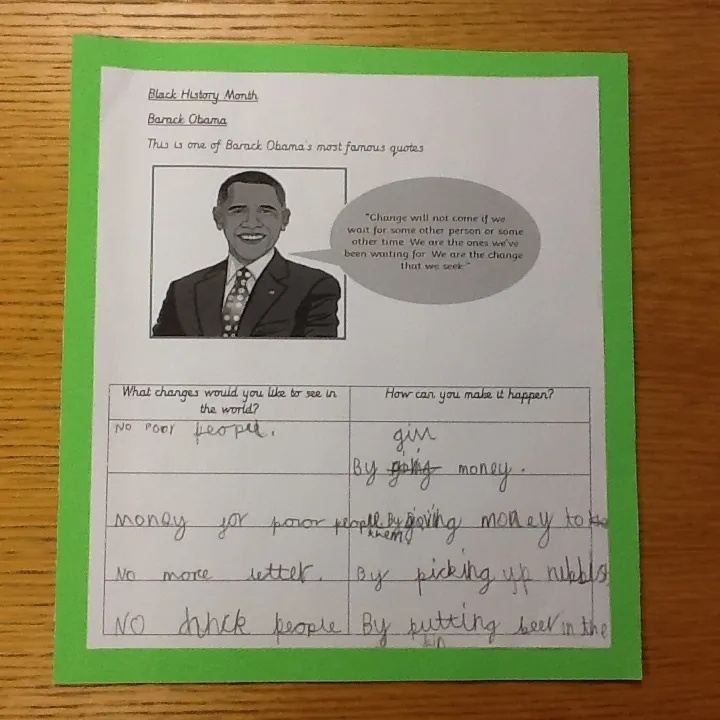 Black History Month
Barack Obama
This is one of Barack Obama's most famous quotes
"Change will not come if we
wait for some other person or some
other time. We are the ones we've
been waiting for. We are the change
that we seek."
What changes would you like to see in
the world?
How can you make it happen?
No poor people.
By money.
Money for poor people
By giving money to
them
No more letter.
By picking up
No people
By putting beer in the
bin